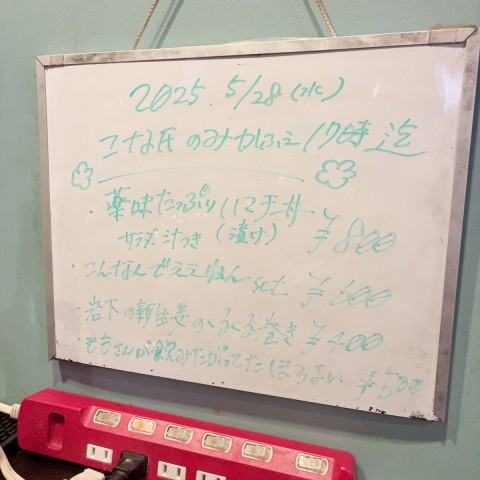 2025 5/28 (水)
こな氏 のみかふぇ 17時迄
・薬味たっぷりハマチ丼 ¥800
サラダ 汁つき (漬け)
・こんなんでええねん set ¥600
・岩下の新生姜のくるくる巻き ¥400
・そうさんが飲みたがってた ほろよい ¥500